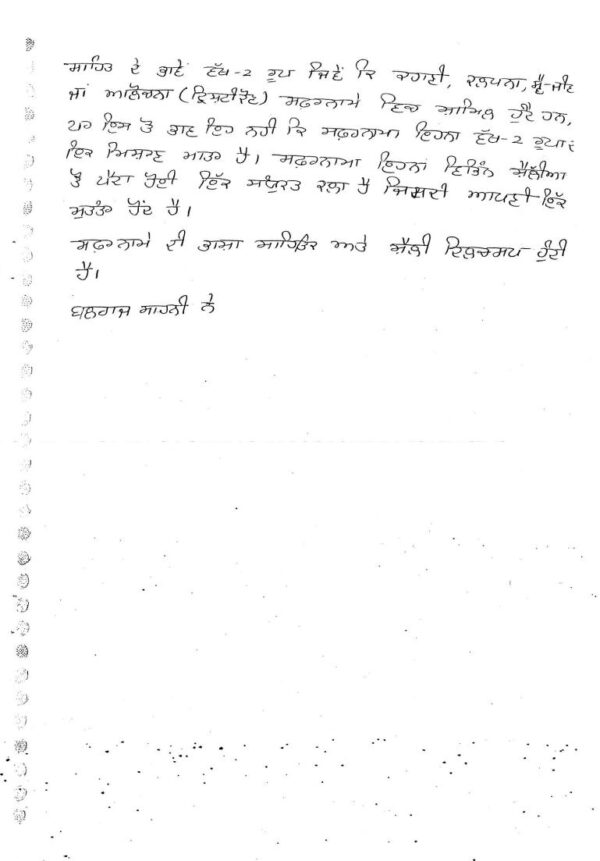 ਸਾਹਿਤ ਦੇ ਭਾਵੇਂ ਵੱਖ-2 ਰੂਪ ਜਿਵੇਂ ਕਿ ਕਹਾਣੀ, ਕਲਪਨਾ, ਸ੍ਵੈ-ਜੀਵ
ਜਾਂ ਆਲੋਚਨਾ (ਦ੍ਰਿਸ਼ਟੀਕੋਣ) ਸਫ਼ਰਨਾਮੇ ਵਿਚ ਸ਼ਾਮਿਲ ਹੁੰਦੇ ਹਨ,
ਪਰ ਇਸ ਤੋਂ ਭਾਵ ਇਹ ਨਹੀਂ ਕਿ ਸਫ਼ਰਨਾਮਾ ਇਹਨਾਂ ਵੱਖ-2 ਰੂਪਾਂ
ਇਕ ਮਿਸ਼ਰਣ ਮਾਤਰ ਹੈ। ਸਫ਼ਰਨਾਮਾ ਇਹਨਾਂ ਵਿਭਿੰਨ ਸ਼ੈਲੀਆਂ
ਤੋਂ ਪੈਦਾ ਹੋਈ ਇੱਕ ਸੰਯੁਕਤ ਕਲਾ ਹੈ ਜਿਸਦੀ ਆਪਣੀ ਇੱਕ
ਸੁਤੰਤਰ ਹੋਂਦ ਹੈ।
ਸਫ਼ਰਨਾਮੇ ਦੀ ਭਾਸ਼ਾ ਸਾਹਿਤਿਕ ਅਤੇ ਸ਼ੈਲੀ ਦਿਲਚਸਪ ਹੁੰਦੀ
ਹੈ।
ਬਲਰਾਜ ਸਾਹਨੀ ਨੇ